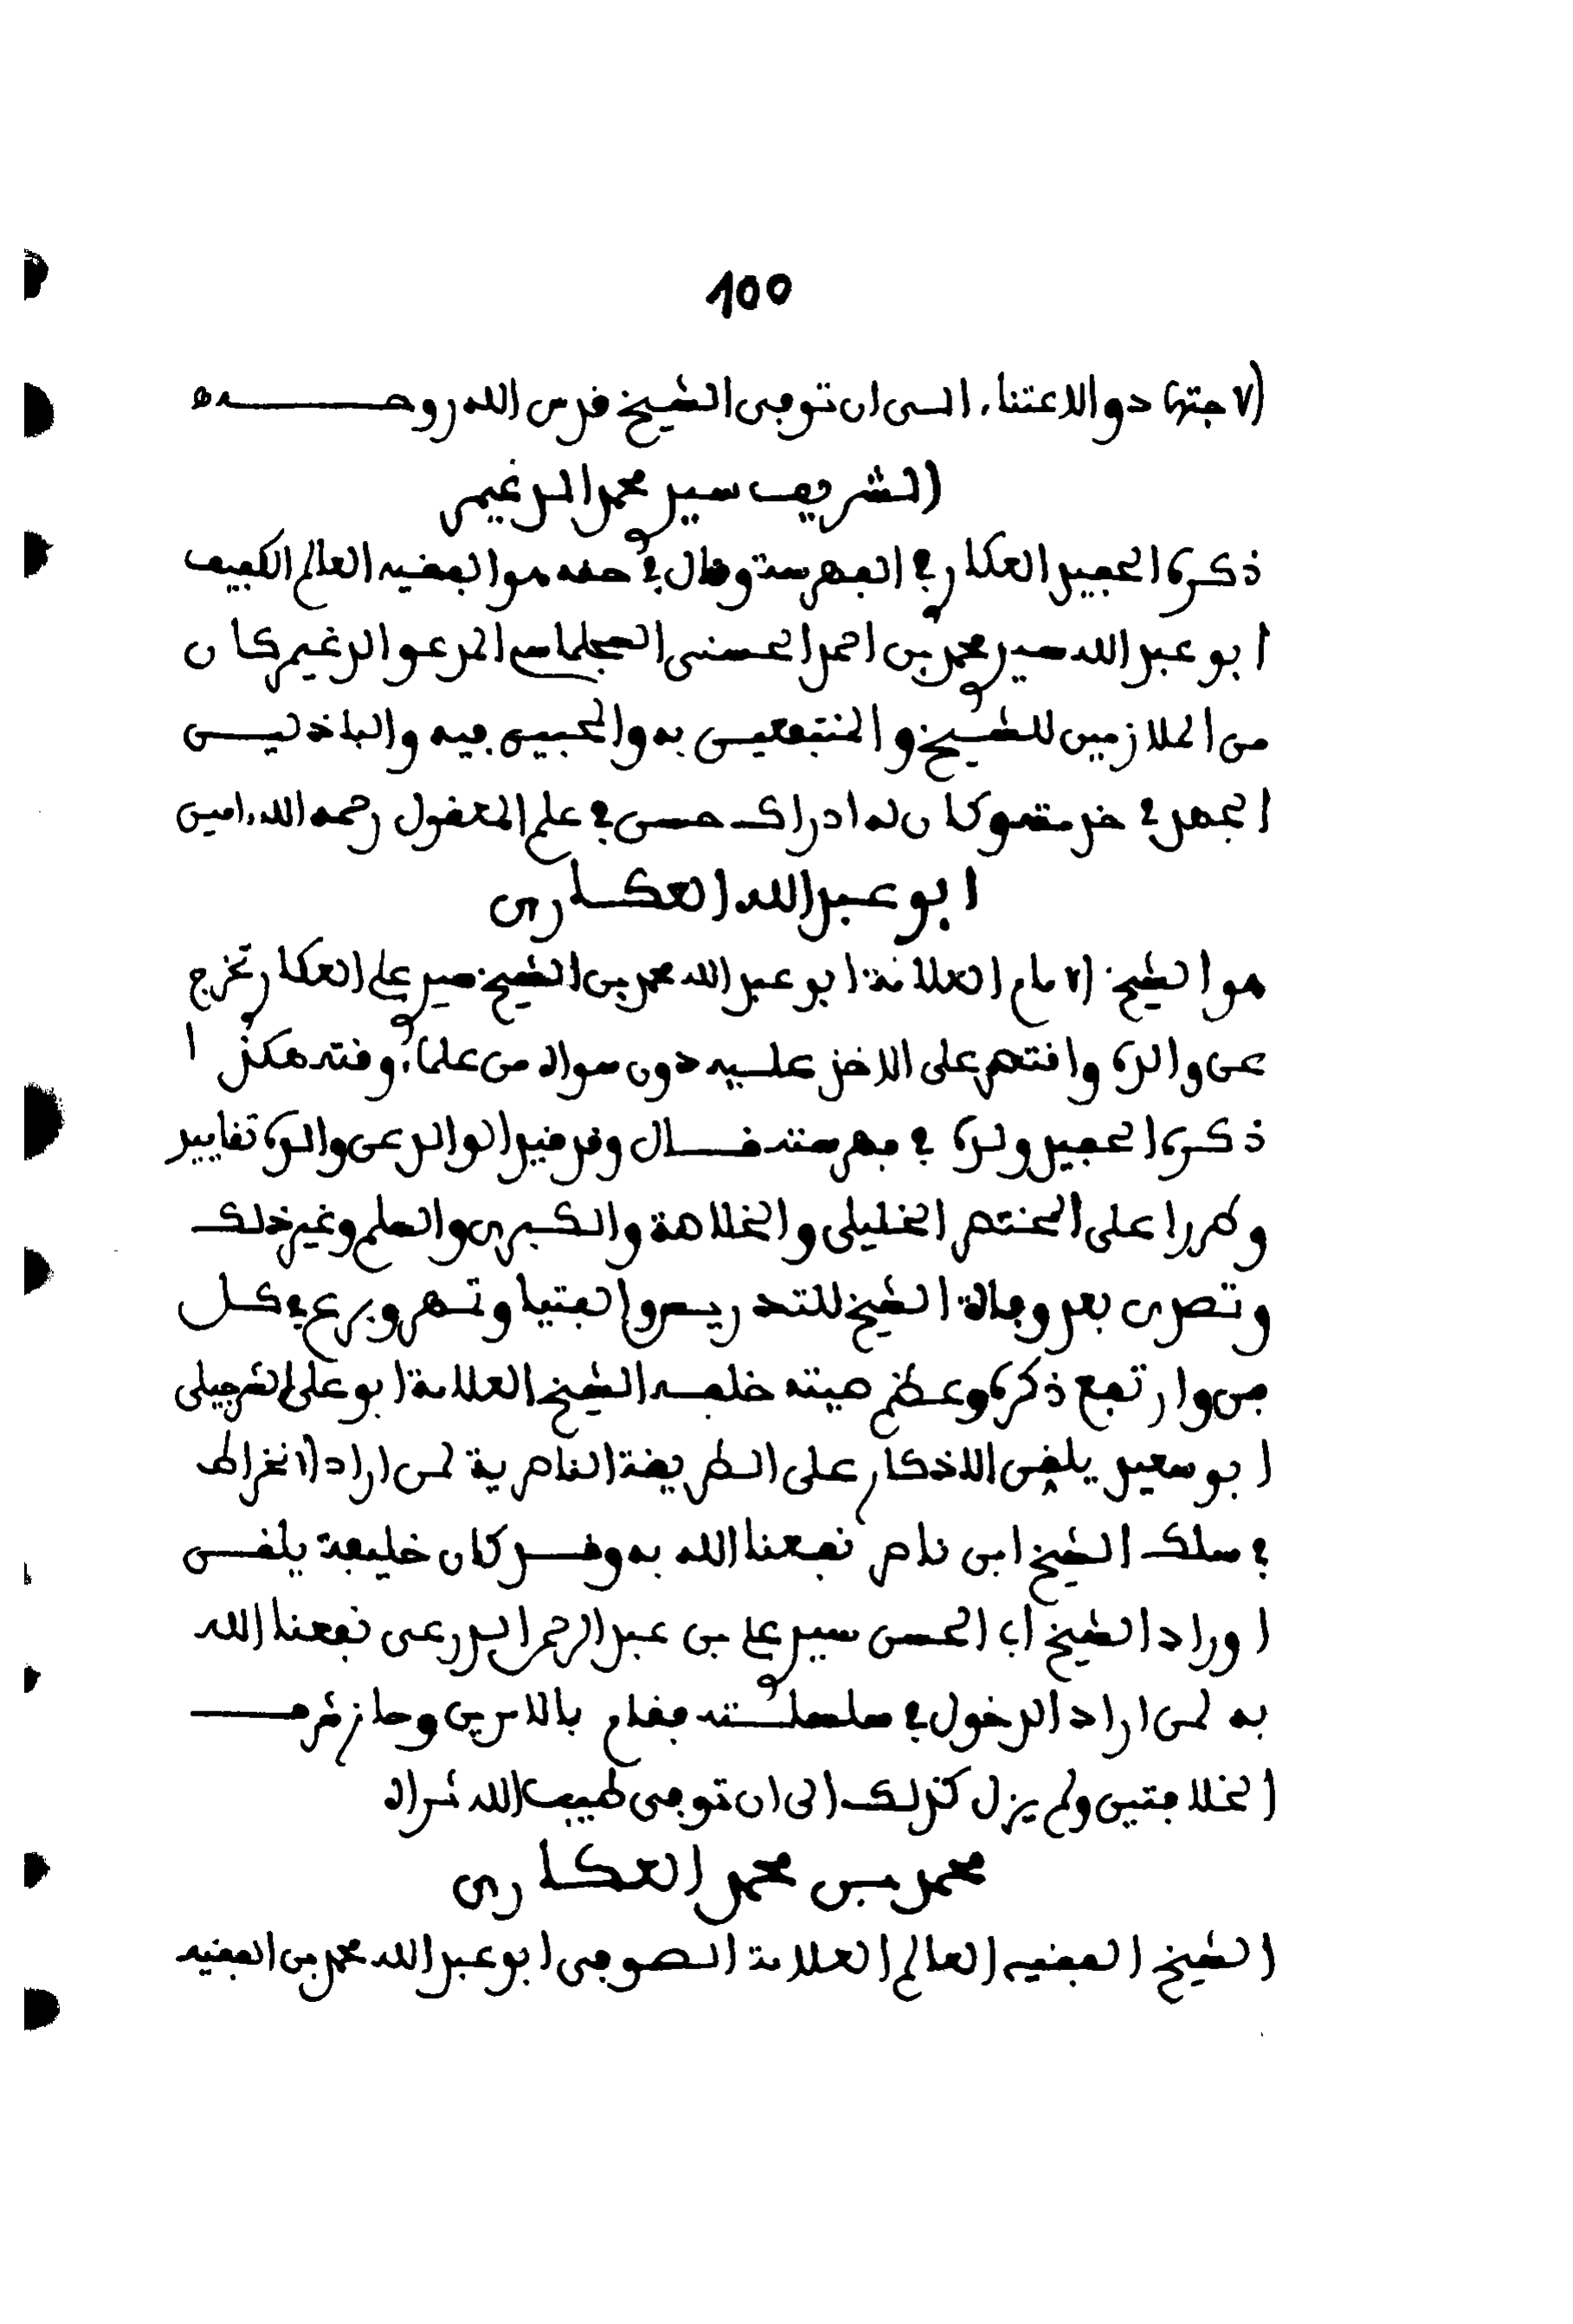 100
الاجتهاد والاعتناء الى ان توفى الشيخ قدس الله روحه
الشريف سيدي محمد الدغيمي
ذكره الحفيد العكاري في الفهرسة وقال في حقه هو الفقيه العالم الكفيف
ابو عبد الله سيدي محمد بن احمد الحسني السجلماسي المدعو الدغيمي كان
من الملازمين للشيخ والمنتفعين به والمحبين فيه والباذلين
الجهد في خدمته وكان له ادراك حسن في علم المعقول رحمه الله امين
ابو عبد الله العكاري
هو الشيخ الامام العلامة ابو عبد الله محمد بن الشيخ سيدي علي العكاري تخرج
عن والده واقتصر على الاخذ عليه دون سواه من علماء وقته هكذا
ذكره الحفيد ولده في فهرسته قال وقد قيد الوالد عن والده تقاييد
وطررا على المختصر الخليلي والخلاصة والكبرى والسلم وغير ذلك
وتصدى بعد وفاة الشيخ للتدريس والفتيا وشهر وبرع في كل
فن وارتفع ذكره وعظم صيته خلفه الشيخ العلامة ابو علي الشرحبيلي
ابو سعيدي يلقن الاذكار على الطريقة الناصرية لمن اراد الانخراط
في سلك الشيخ ابن ناصر نفعنا الله به وقد كان خليفة يلقن
اوراد الشيخ ابي الحسن سيدي علي بن عبد الرحمن الدرعي نفعنا الله
به لمن اراد الدخول في سلسلته فقام بالامرين وحاز شرف
الخلافتين ولم يزل كذلك الى ان توفى طيب الله ثراه
محمد بن محمد العكاري
الشيخ الفقيه العالم العلامة الصوفي ابو عبد الله محمد بن الفقيه